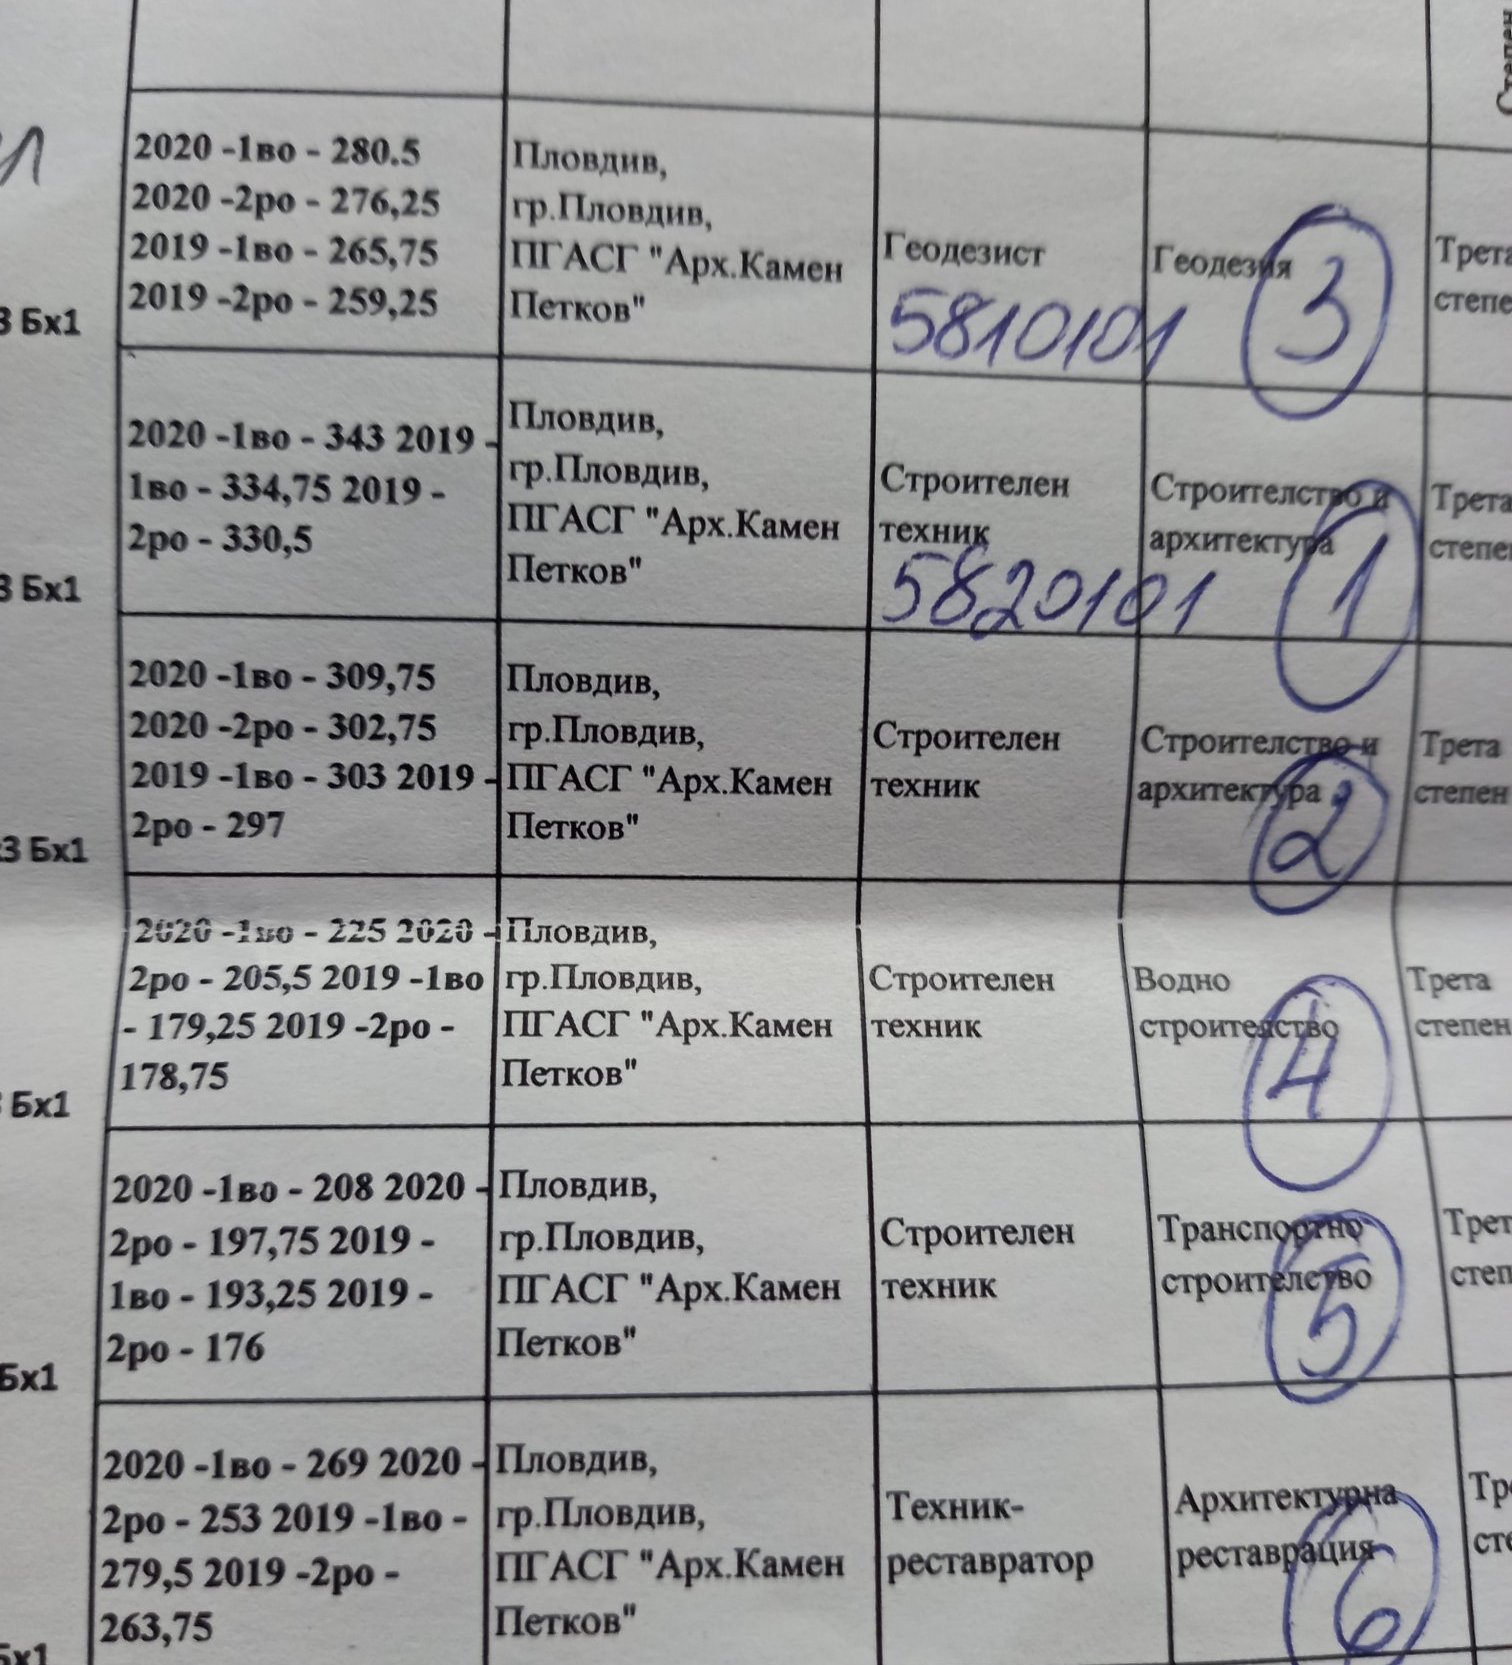 Степен
2020 -1во - 280.5
2020 -2ро - 276,25
2019 -1во - 265,75
2019 -2ро - 259,25
Пловдив,
гр.Пловдив,
ПГАСГ "Арх.Камен
Петков"
Геодезист
5810101
Геодезия
3
Трета
степе
3 Бх1
2020 -1во - 343 2019 -
1во - 334,75 2019 -
2ро - 330,5
Пловдив,
гр.Пловдив,
ПГАСГ "Арх.Камен
Петков"
Строителен
техник
5820101
Строителство и
архитектура
1
Трета
степен
3 Бх1
2020 -1во - 309,75
2020 -2ро - 302,75
2019 -1во - 303 2019 -
2ро - 297
Пловдив,
гр.Пловдив,
ПГАСГ "Арх.Камен
Петков"
Строителен
техник
Строителство и
архитектура
2
Трета
степен
3 Бх1
2020 -1во - 225 2020 -
2ро - 205,5 2019 -1во
- 179,25 2019 -2ро -
178,75
Пловдив,
гр.Пловдив,
ПГАСГ "Арх.Камен
Петков"
Строителен
техник
Водно
строителство
4
Трета
степен
Бх1
2020 -1во - 208 2020 -
2ро - 197,75 2019 -
1во - 193,25 2019 -
2ро - 176
Пловдив,
гр.Пловдив,
ПГАСГ "Арх.Камен
Петков"
Строителен
техник
Транспортно
строителство
5
Трет
степ
Бх1
2020 -1во - 269 2020 -
2ро - 253 2019 -1во -
279,5 2019 -2ро -
263,75
Пловдив,
гр.Пловдив,
ПГАСГ "Арх.Камен
Петков"
Техник-
реставратор
Архитектурна
реставрация
6
Тр
сте
Бх1